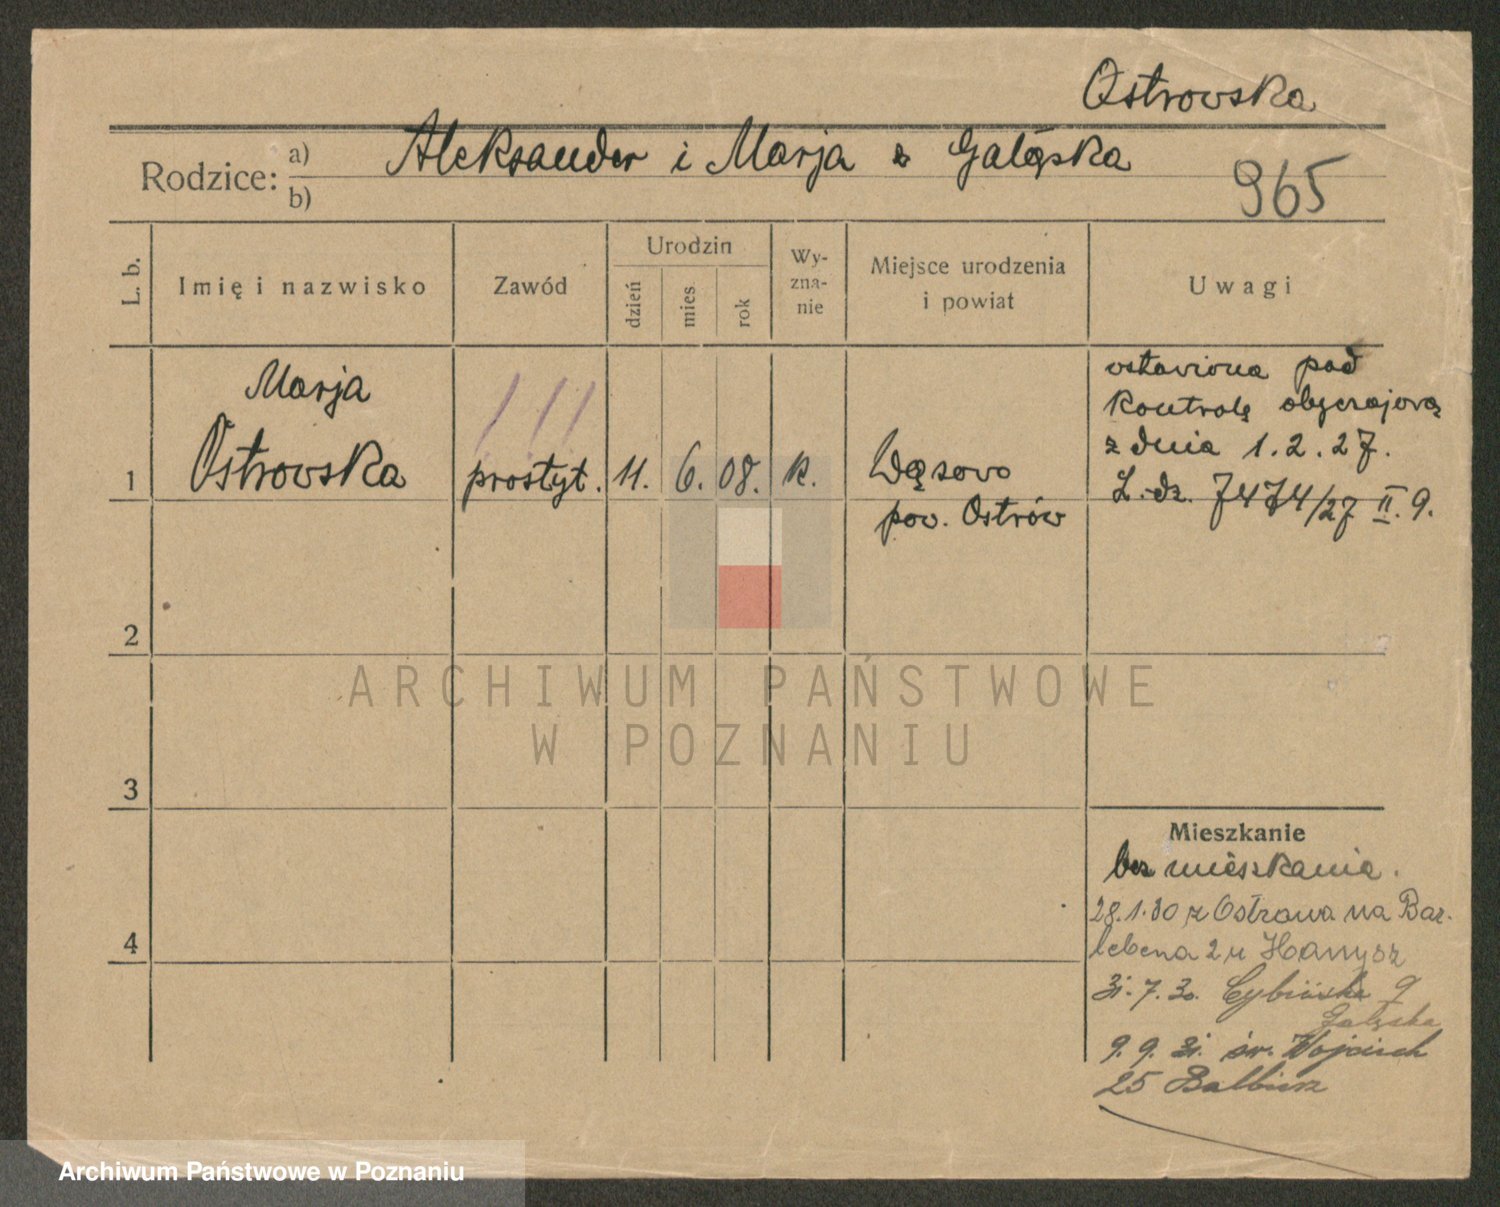 Ostrowska
Rodzice: a) b)
Aleksander i Marja z Galęska
965
L. b.
Imię i nazwisko
Zawód
Urodzin
dzień
mies.
rok
Wy-
zna-
nie
Miejsce urodzenia
i powiat
Uwagi
Marja
1 Ostrowska
prostyt.
11. 6. 08. k.
Wąsowo
pow. Ostrów
wstawiona pod
kontrolę obyczajową
z dnia 1.2.27.
L.dz. 7474/27 II.9.
2
ARCHIWUM PAŃSTWOWE
W POZNANIU
3
4
Mieszkanie
bez mieszkania.
28.1.30 z Ostrowa na Bar-
lebena 2 u Hanysz
31.7.30. Cybińska 9
Galęska
9.9.31. św. Wojciech
25
Archiwum Państwowe w Poznaniu